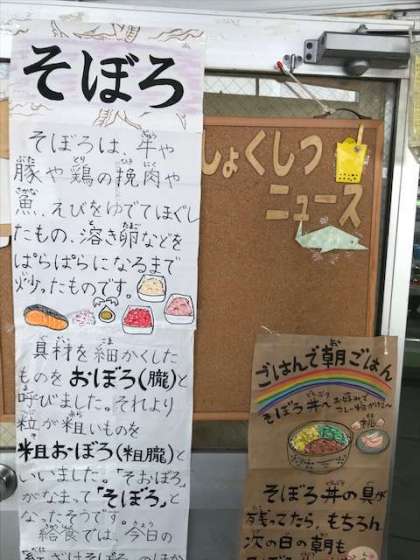 そぼろ
そぼろは、牛や
豚や鶏の挽肉や
魚、えびをゆでてほぐし
たもの、溶き卵などを
ぱらぱらになるまで
炒ったものです。
具材を細かくした
ものをおぼろ(朧)と
呼びました。それより
粒が粗いものを
粗おぼろ(粗朧)と
いいました。「そおぼろ」
がなまって「そぼろ」と
なったそうです。
給食では、今日の
しょくしつ
ニュース
ごはんで朝ごはん
そぼろ丼へ
そぼろ丼の具が
残ってたら、もちろん
次の日の朝も